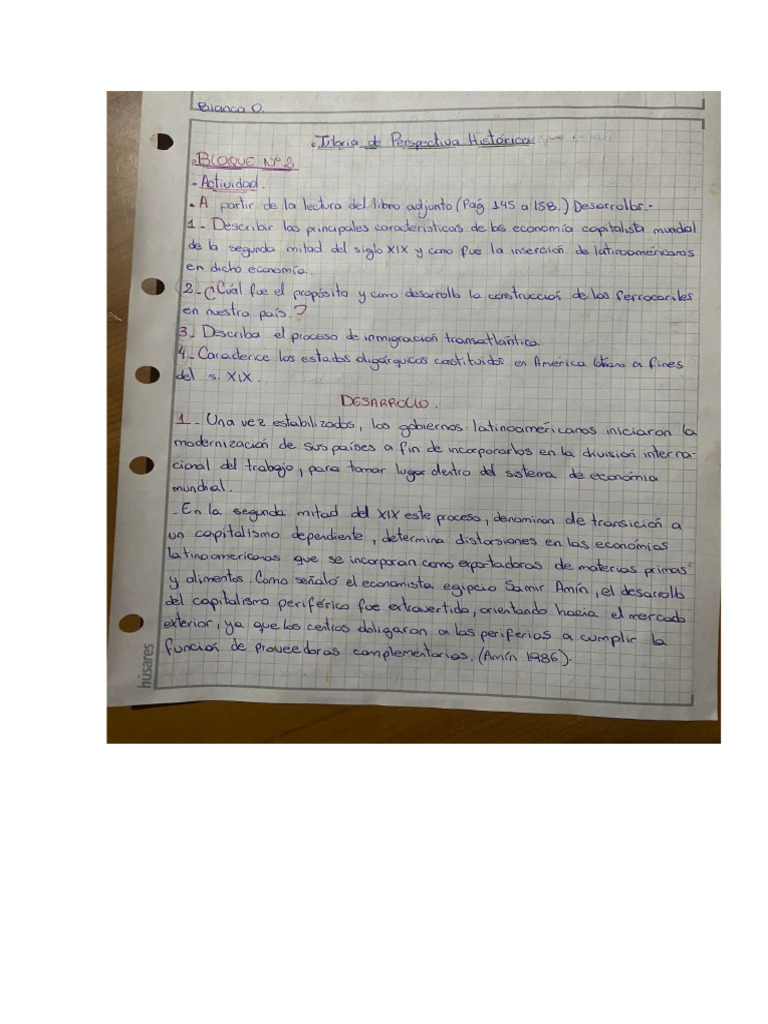 Bianca O.
. Itoria de Perspectiva Histórica
. BLOQUE Nº 2
- Actividad.
. A partir de la lectura del libro adjunto (Pág 145 a 158.) Desarrollar.-
1- Describir las principales características de las economía capitalista mundial
de la segunda mitad del siglo XIX y como fue la inserción de latinoaméricanas
en dicho economía.
2- ¿Cuál fue el propósito y como desarrollo la construcción de los ferrocariles
en nuestro país.?
3- Describa el proceso de inmigración transatlántica.
4- Caraderice los estados oligárquicos castituidos en América latina a fines
del s. XIX.
DESARROLLO.
1- Una vez estabilizados, los gobiernos latinoaméricanos iniciaron la
modernización de sus países a fin de incorporarlos en la división interna-
cional del trabajo, para tomar lugar dentro del sistema de económia
mundial.
- En la segunda mitad del XIX este proceso, denominan de transición a
un capitalismo dependiente, determina distorsiones en las económias
latinoamericanas que se incorporan como exportadoras de materias primas
y alimentos. Como señaló el economista egipcio Samir Amín, el desarollo
del capitalismo periférico fue extravertido, orientando hacia el mercado
exterior, ya que los centros obligaron a las periferias a cumplir la
función de proveedoras complementarias. (Amín 1986).
húsares